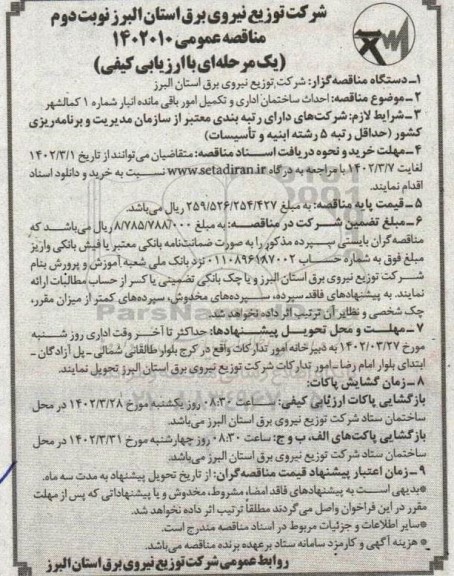 شرکت توزیع نیروی برق استان البرز نوبت دوم
مناقصه عمومی ۱۴۰۲۰۱۰
(یک مرحله‌ای با ارزیابی کیفی)
۱- دستگاه مناقصه‌گزار: شرکت توزیع نیروی برق استان البرز
۲- موضوع مناقصه: احداث ساختمان اداری و تکمیل امور باقی مانده انبار شماره ۱ کمالشهر
۳- شرایط لازم: شرکت‌های دارای رتبه بندی معتبر از سازمان مدیریت و برنامه‌ریزی
کشور (حداقل رتبه ۵ رشته ابنیه و تأسیسات)
۴- مهلت خرید و نحوه دریافت اسناد مناقصه: متقاضیان می‌توانند از تاریخ ۱۴۰۲/۳/۱
لغایت ۱۴۰۲/۳/۷ با مراجعه به درگاه www.setadiran.ir نسبت به خرید و دانلود اسناد
اقدام نمایند.
۵- قیمت پایه مناقصه: به مبلغ ۲۵۹/۵۲۶/۲۵۴/۴۲۷ ریال می‌باشد.
۶- مبلغ تضمین شرکت در مناقصه: به مبلغ ۸/۷۸۵/۷۸۸/۰۰۰ ریال می‌باشد که
مناقصه‌گران بایستی سپرده مذکور را به صورت ضمانت‌نامه بانکی معتبر یا فیش بانکی واریز
مبلغ فوق به شماره حساب ۰۱۱۰۸۹۶۱۸۷۰۰۲ نزد بانک ملی شعبه آموزش و پرورش بنام
شرکت توزیع نیروی برق استان البرز و یا چک بانکی تضمینی یا کسر از حساب مطالبات ارائه
نمایند. به پیشنهادهای فاقد سپرده، سپرده‌های مخدوش، سپرده‌های کمتر از میزان مقرر،
چک شخصی و نظایر آن ترتیب اثر داده نخواهد شد.
۷- مهلت و محل تحویل پیشنهادها: حداکثر تا آخر وقت اداری روز شنبه
مورخ ۱۴۰۲/۰۳/۲۷ به دبیرخانه امور تدارکات واقع در کرج بلوار طالقانی شمالی - پل آزادگان -
ابتدای بلوار امام رضا - امور تدارکات شرکت توزیع نیروی برق استان البرز تحویل نمایند.
۸- زمان گشایش پاکات:
بازگشایی پاکات ارزیابی کیفی: ساعت ۰۸:۳۰ روز یکشنبه مورخ ۱۴۰۲/۳/۲۸ در محل
ساختمان ستاد شرکت توزیع نیروی برق استان البرز می‌باشد.
بازگشایی پاکت‌های الف، ب و ج: ساعت ۰۸:۳۰ روز چهارشنبه مورخ ۱۴۰۲/۳/۳۱ در محل
ساختمان ستاد شرکت توزیع نیروی برق استان البرز می‌باشد.
۹- زمان اعتبار پیشنهاد قیمت مناقصه‌گران: از تاریخ تحویل پیشنهاد به مدت سه ماه.
*بدیهی است به پیشنهادهای فاقد امضاء، مشروط، مخدوش و یا پیشنهاداتی که پس از مهلت
مقرر در این فراخوان واصل می‌گردند مطلقاً ترتیب اثر داده نخواهد شد.
*سایر اطلاعات و جزئیات مربوط در اسناد مناقصه مندرج است.
* هزینه آگهی و کارمزد سامانه ستاد برعهده برنده مناقصه می‌باشد.
روابط عمومی شرکت توزیع نیروی برق استان البرز